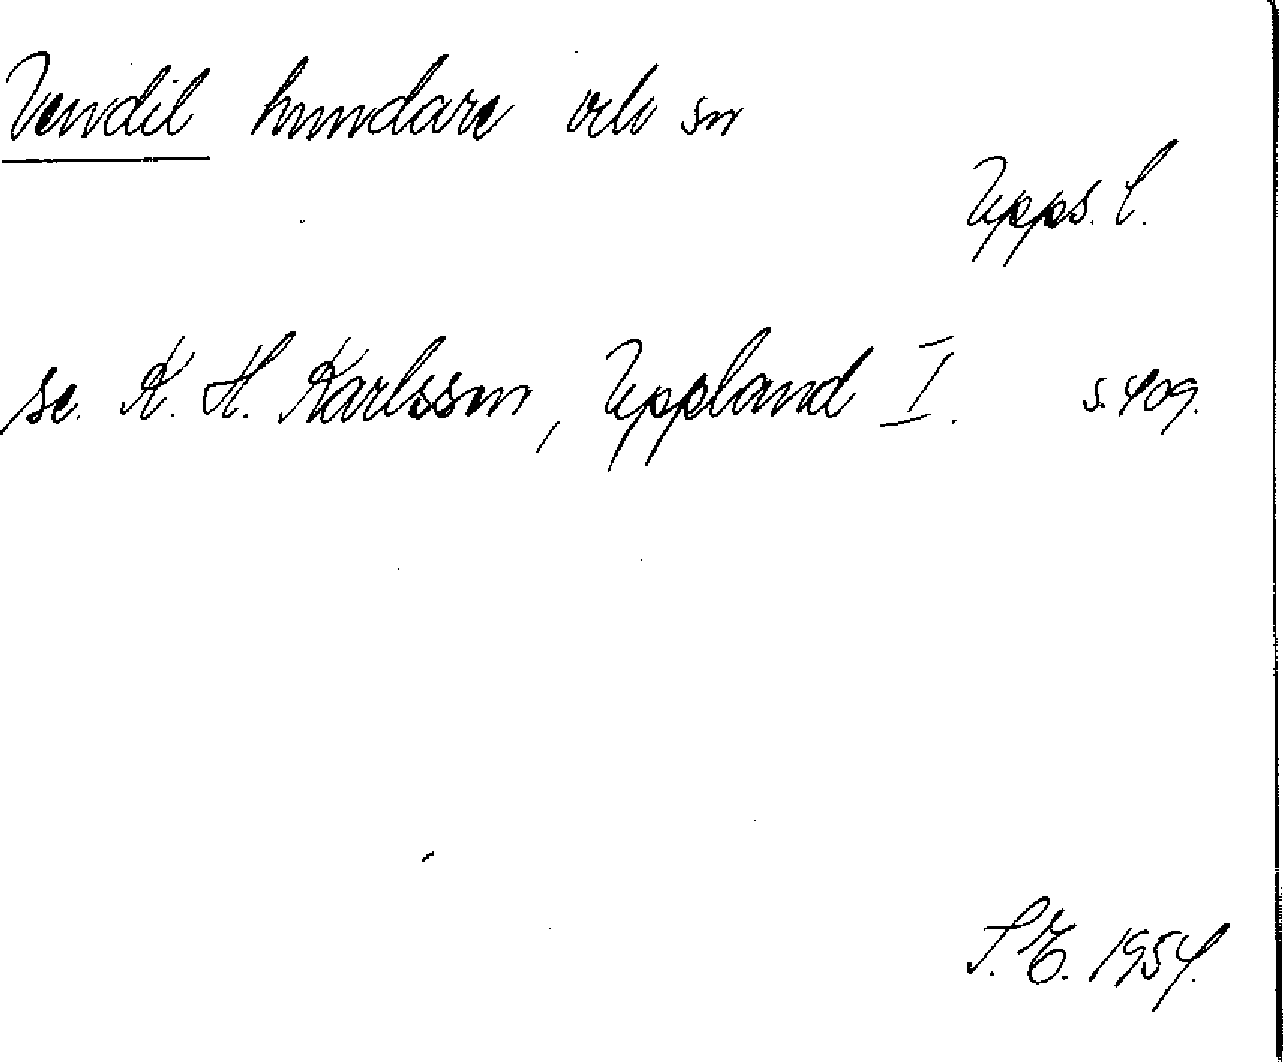 Vendil hundare och sn
Upps. l.
se. K. H. Karlsson, Uppland I. s. 409.
S. E. 1954.